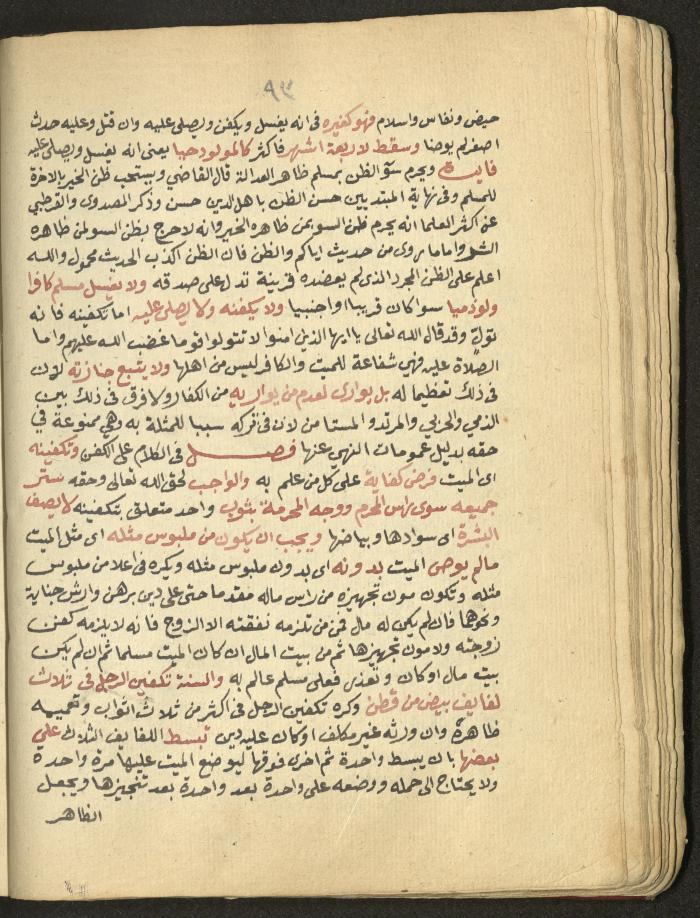 ٩٣
حيض ونفاس واسلام فهو كغيره فى انه يغسل ويكفن ويصلى عليه وان قتل وعليه حدث
اصغر لم يوضا وسقط لاربعة اشهر فاكثر كالمولود حيا يعنى انه يغسل ويصلى عليه
فايدة ويحرم سوّ الظن بمسلم ظاهر العدالة قال القاضي ويستحب ظن الخير بالاخ
للمسلم وفى نهاية المبتديين حسن الظن باهل الدين حسن وذكر المهدوى والقرطبي
عن اكثر العلما انه يحرم ظن السو بمن ظاهره الخير وانه لا حرج بظن السو لمن ظاهره
الشر واما ما روى من حديث اياكم والظن فان الظن اكذب الحديث محمول والله
اعلم على الظن المجرد الذى لم يعضده قرينة تدل على صدقه ولا يغسل مسلم كافرا
ولو ذميا سوا كان قريبا او اجنبيا ولا يكفنه ولا يصلى عليه اما تكفينه فانه
تولٍ وقد قال الله تعالى يا ايها الذين امنوا لا تتولوا قوما غضب الله عليهم واما
الصلاة عليه فهى شفاعة للميت والكافر ليس من اهلها ولا يتبع جنازته لان
فى ذلك تعظيما له بل يوارى لعدم من يواريه من الكفار ولا فرق فى ذلك بين
الذمي والحربي والمرتد والمستامن لان فى تركه سببا للمثلة به وهي ممنوعة في
حقه بدليل عمومات النهي عنها فصل فى الكلام على الكفن وتكفينه
اى الميت فرض كفاية على كل من علم به والواجب لحق الله تعالى وحقه ستر
جميعه سوى راس المحرم ووجه المحرمة بثوب واحد متعلق بتكفينه لا يصف
البشرة اى سوادها وبياضها ويجب ان يكون من ملبوس مثله اى مثل الميت
مالم يوصى الميت بدونه اى بدون ملبوس مثله ويكره فى اعلا من ملبوس
مثله وتكون مون تجهيزه من راس ماله مقدما حتى على دين برهن وارش جناية
ونحوها فان لم يكن له مال فمن تلزمه نفقته الا الزوج فانه لا يلزمه كفن
زوجته ولا مون تجهيزها ثم من بيت المال ان كان الميت مسلما ثم ان لم يكن
بيت مال او كان وتعذر فعلى مسلم عالم به والسنة تكفين الرجل فى ثلاث
لفايف بيض من قطن وكره تكفين الرجل فى اكثر من ثلاث اثواب وتعميمه
ظاهرة وان ورثه غير مكلف او كان عليه دين تبسط اللفايف الثلاث على
بعضها بان يبسط واحدة ثم اخرى فوقها ليوضع الميت عليها مرة واحدة
ولا يحتاج الى حمله ووضعه على واحدة بعد واحدة بعد تنجيزها ويجعل
الظاهر